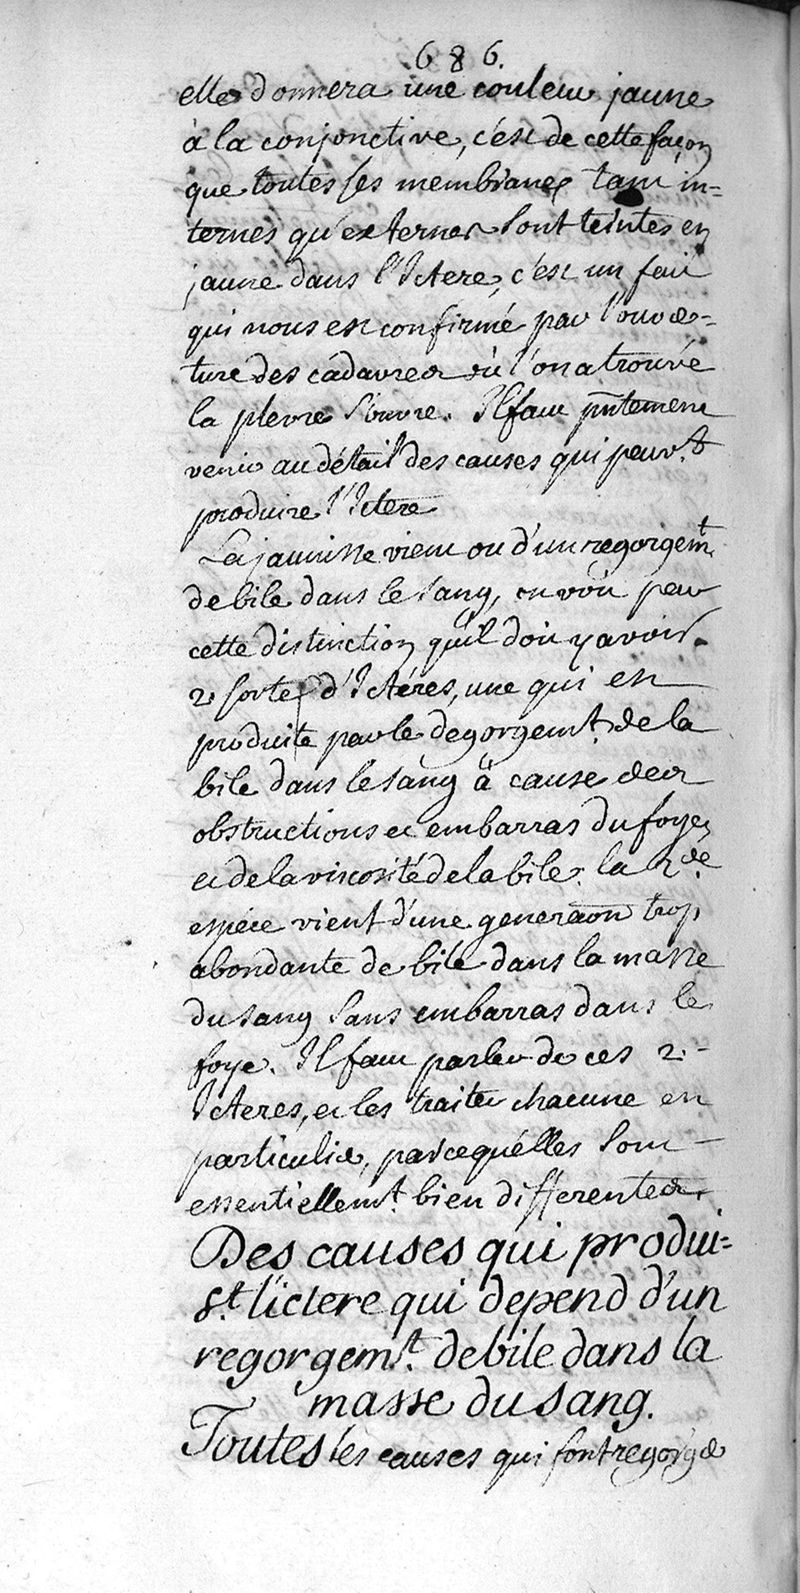 686.
elle donnera une couleur jaune
à la conjonctive, c'est de cette façon
que toutes ses membranes tant in=
ternes qu'externes sont teintes en
jaune dans l'Ictere, c'est un fait
qui nous est confirmé par l'ouver=
ture des cadavres où l'on a trouvé
la plevre. Il faut pntement
venir au détail des causes qui peuv.t
produire l'Ictere
La jaunisse vient ou d'un regorgem.t
de bile dans le sang, on voit par
cette distinction qu'il doit y avoir
2. sortes d'Ictéres, une qui est
produite par le degorgemt. de la
bile dans le sang à cause des
obstructions et embarras du foye,
et de la viscosité de la bile. la 2.de
espéce vient d'une generaon trop
abondante de bile dans la masse
du sang sans embarras dans le
foye. Il faut parler de ces 2.
Icteres, et les traiter chacune en
particulier, parcequélles sont
essentiellemt. bien differentes.
Des causes qui produi=
s.t l'ictere qui depend d'un
regorgem.t de bile dans la
masse du sang.
Toutes les causes qui font regorger